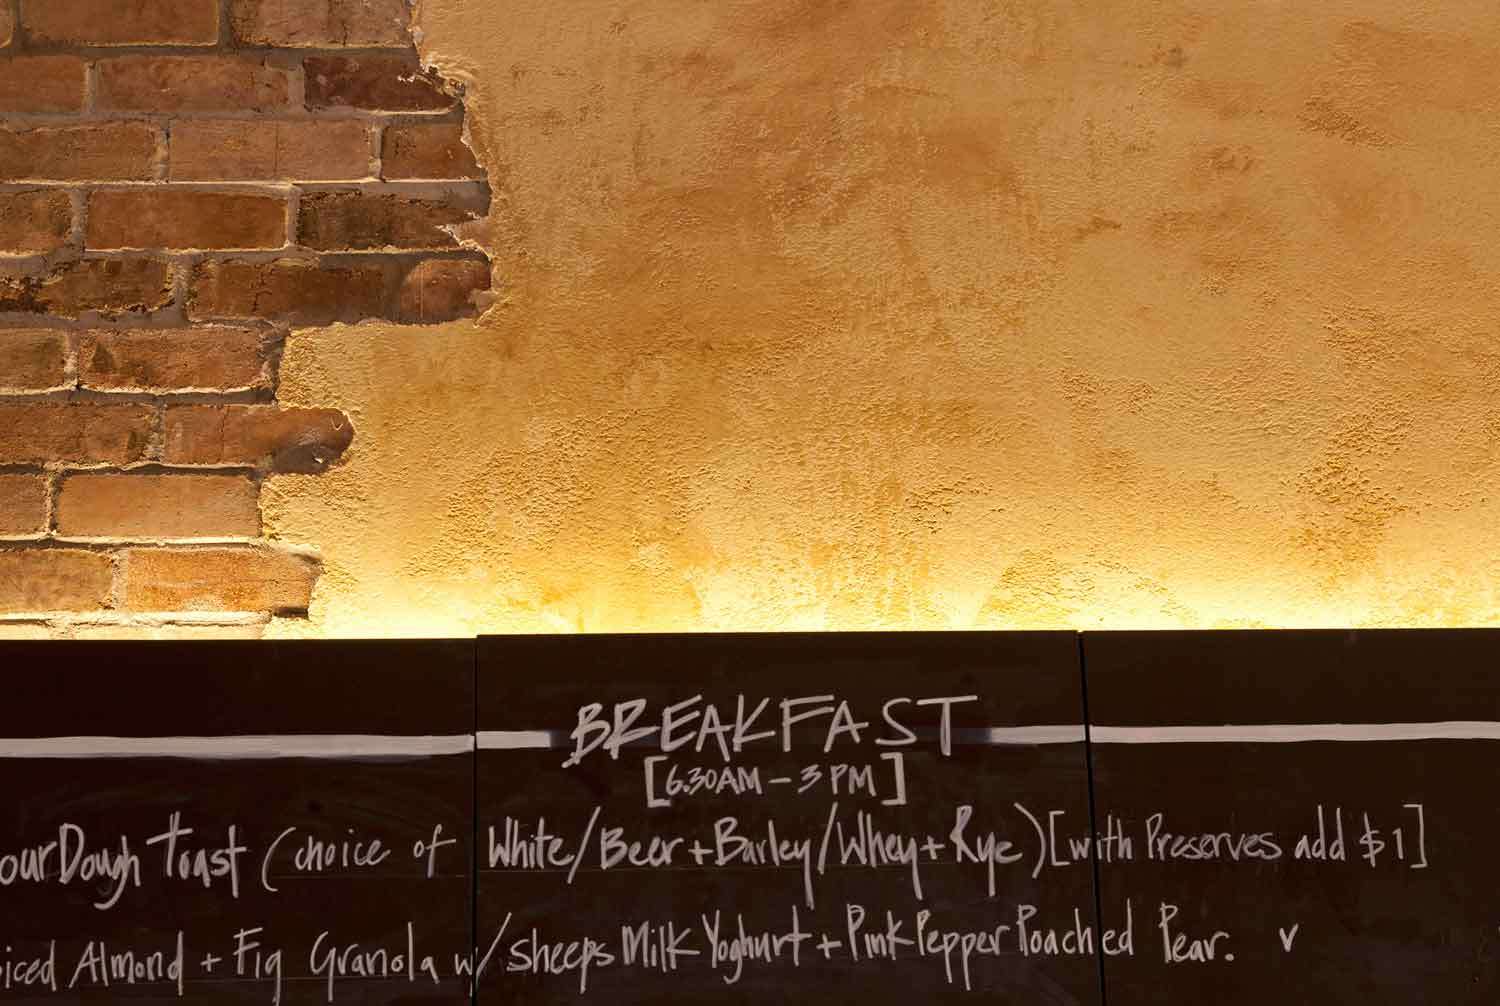 BREAKFAST
[6.30AM – 3 PM]
ourDough Toast (choice of White/Beer + Barley/Whey + Rye) [with Preserves add $1]
iced Almond + Fig Granola w/ sheeps Milk Yoghurt + Pink Pepper Poached Pear. v